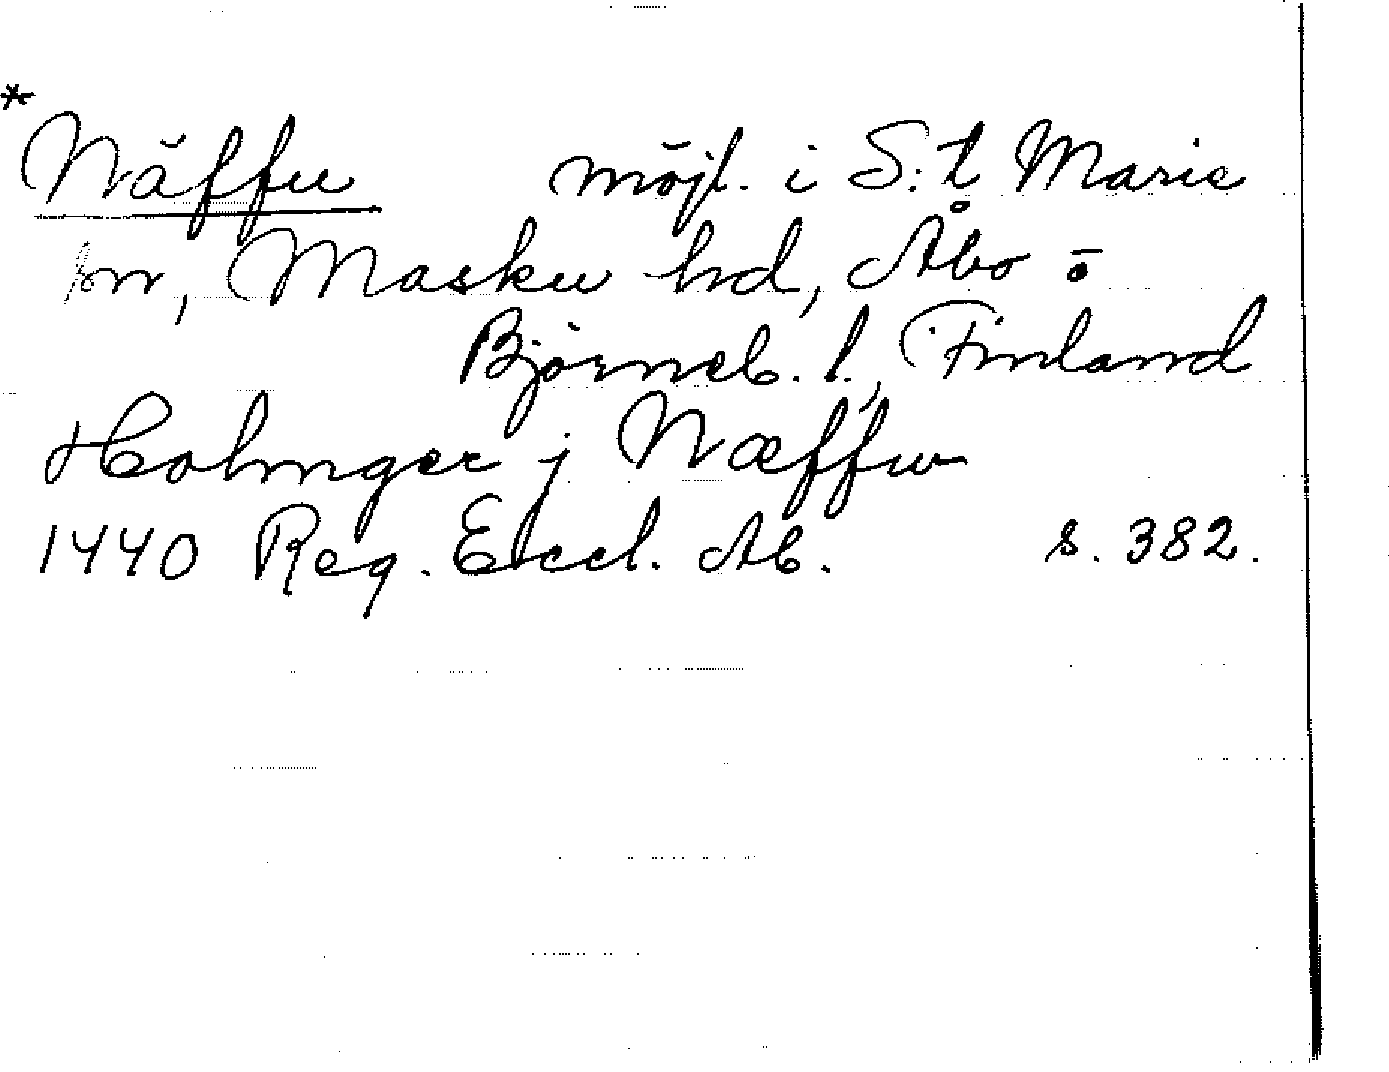 *
Näffu möjl. i S:t Marie
kn, Masku hd, Åbo o
Björneb. l., Finland
Holmger j Næffw
1440 Reg. Eccl. Ab. s. 382.